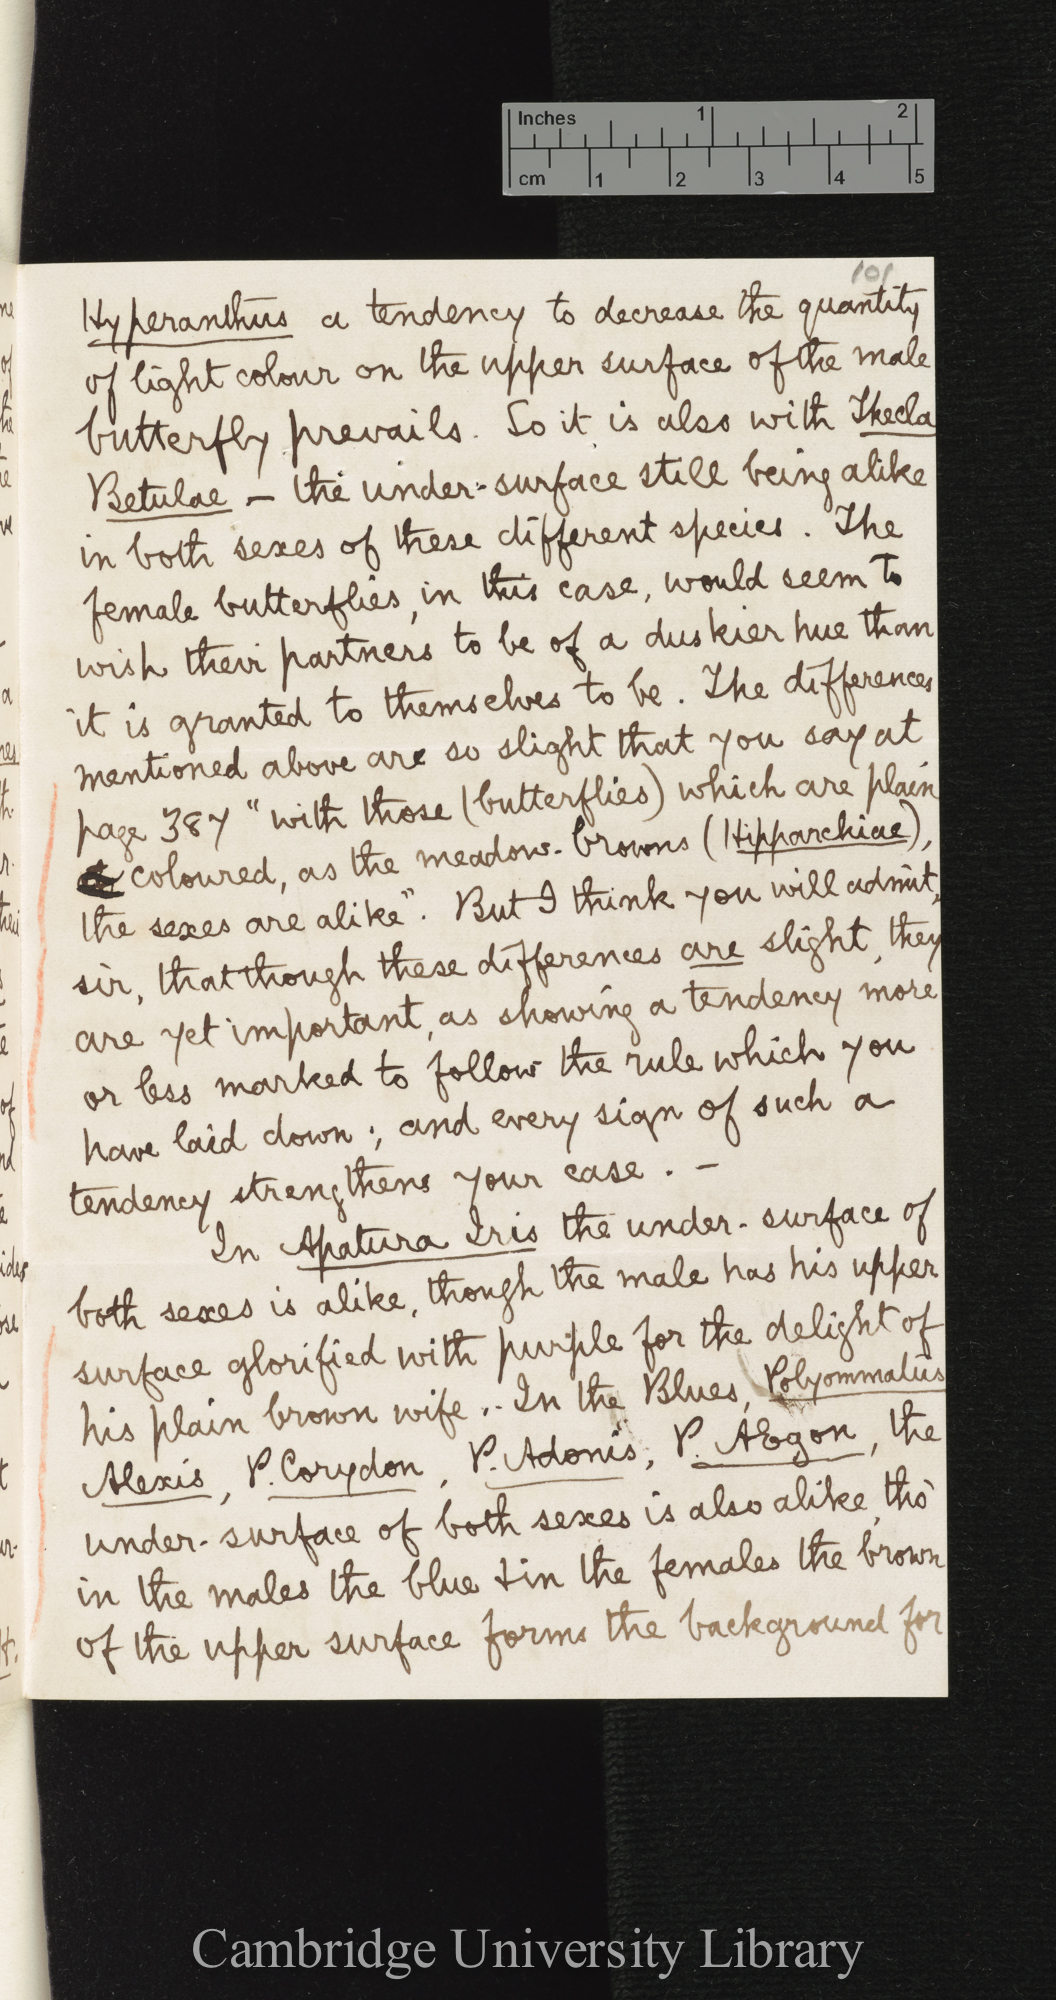 Inches 1 2
cm 1 2 3 4 5
101
Hyperanthus a tendency to decrease the quantity
of light colour on the upper surface of the male
butterfly prevails. So it is also with Thecla
Betulae – the under-surface still being alike
in both sexes of these different species. The
female butterflies, in this case, would seem to
wish their partners to be of a duskier hue than
it is granted to themselves to be. The differences
mentioned above are so slight that you say at
page 387 "with those (butterflies) which are plain
coloured, as the meadow-browns (Hipparchiae),
the sexes are alike". But I think you will admit,
sir, that though these differences are slight, they
are yet important, as showing a tendency more
or less marked to follow the rule which you
have laid down; and every sign of such a
tendency strengthens your case. –
In Apatura Iris the under-surface of
both sexes is alike, though the male has his upper
surface glorified with purple for the delight of
his plain brown wife. In the Blues, Polyommatus
Alexis, P. Corydon, P. Adonis, P. AEgon, the
under-surface of both sexes is also alike, tho'
in the males the blue & in the females the brown
of the upper surface forms the background for
Cambridge University Library